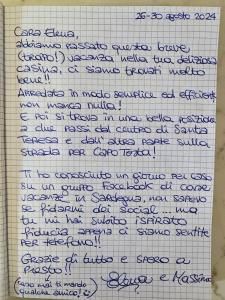 26-30 agosto 2024
Cara Elena,
abbiamo passato questa breve
(troppo!) vacanza nella tua deliziosa
casina, ci siamo trovati molto
bene!!
Arredata in modo semplice ed efficiente
non manca nulla!
E poi si trova in una bella posizione
a due passi dal centro di Santa
Teresa e dall'altra parte sulla
strada per Capo Testa!
Ti ho conosciuto un giorno per caso
su un gruppo Facebook di come
vacanze in Sardegna, non sapevo
se fidarmi dei social... ma
tu mi hai subito ispirato
fiducia appena ci siamo sentite
per telefono!!
Grazie di tutto e spero a
presto!!
e Massimo
(caso mai ti mando
qualche amico!)